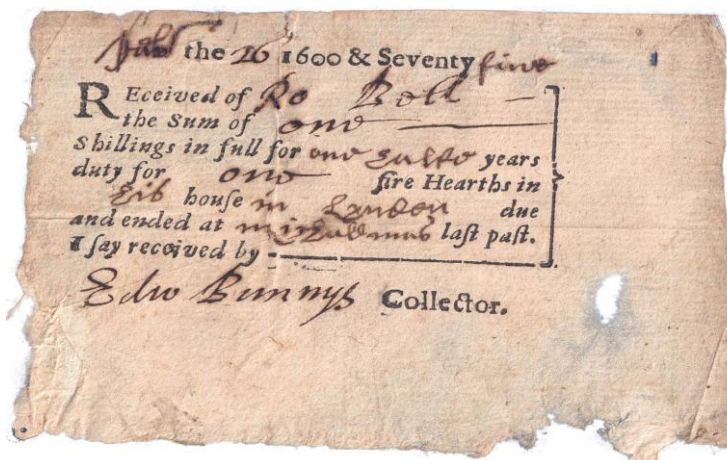 the 26 1600 & Seventy five
REceived of Ro Bell
the Sum of one
Shillings in full for one halfe years
duty for one fire Hearths in
his house in due
and ended at last past.
I say received by
Edw Bunnys Collector.